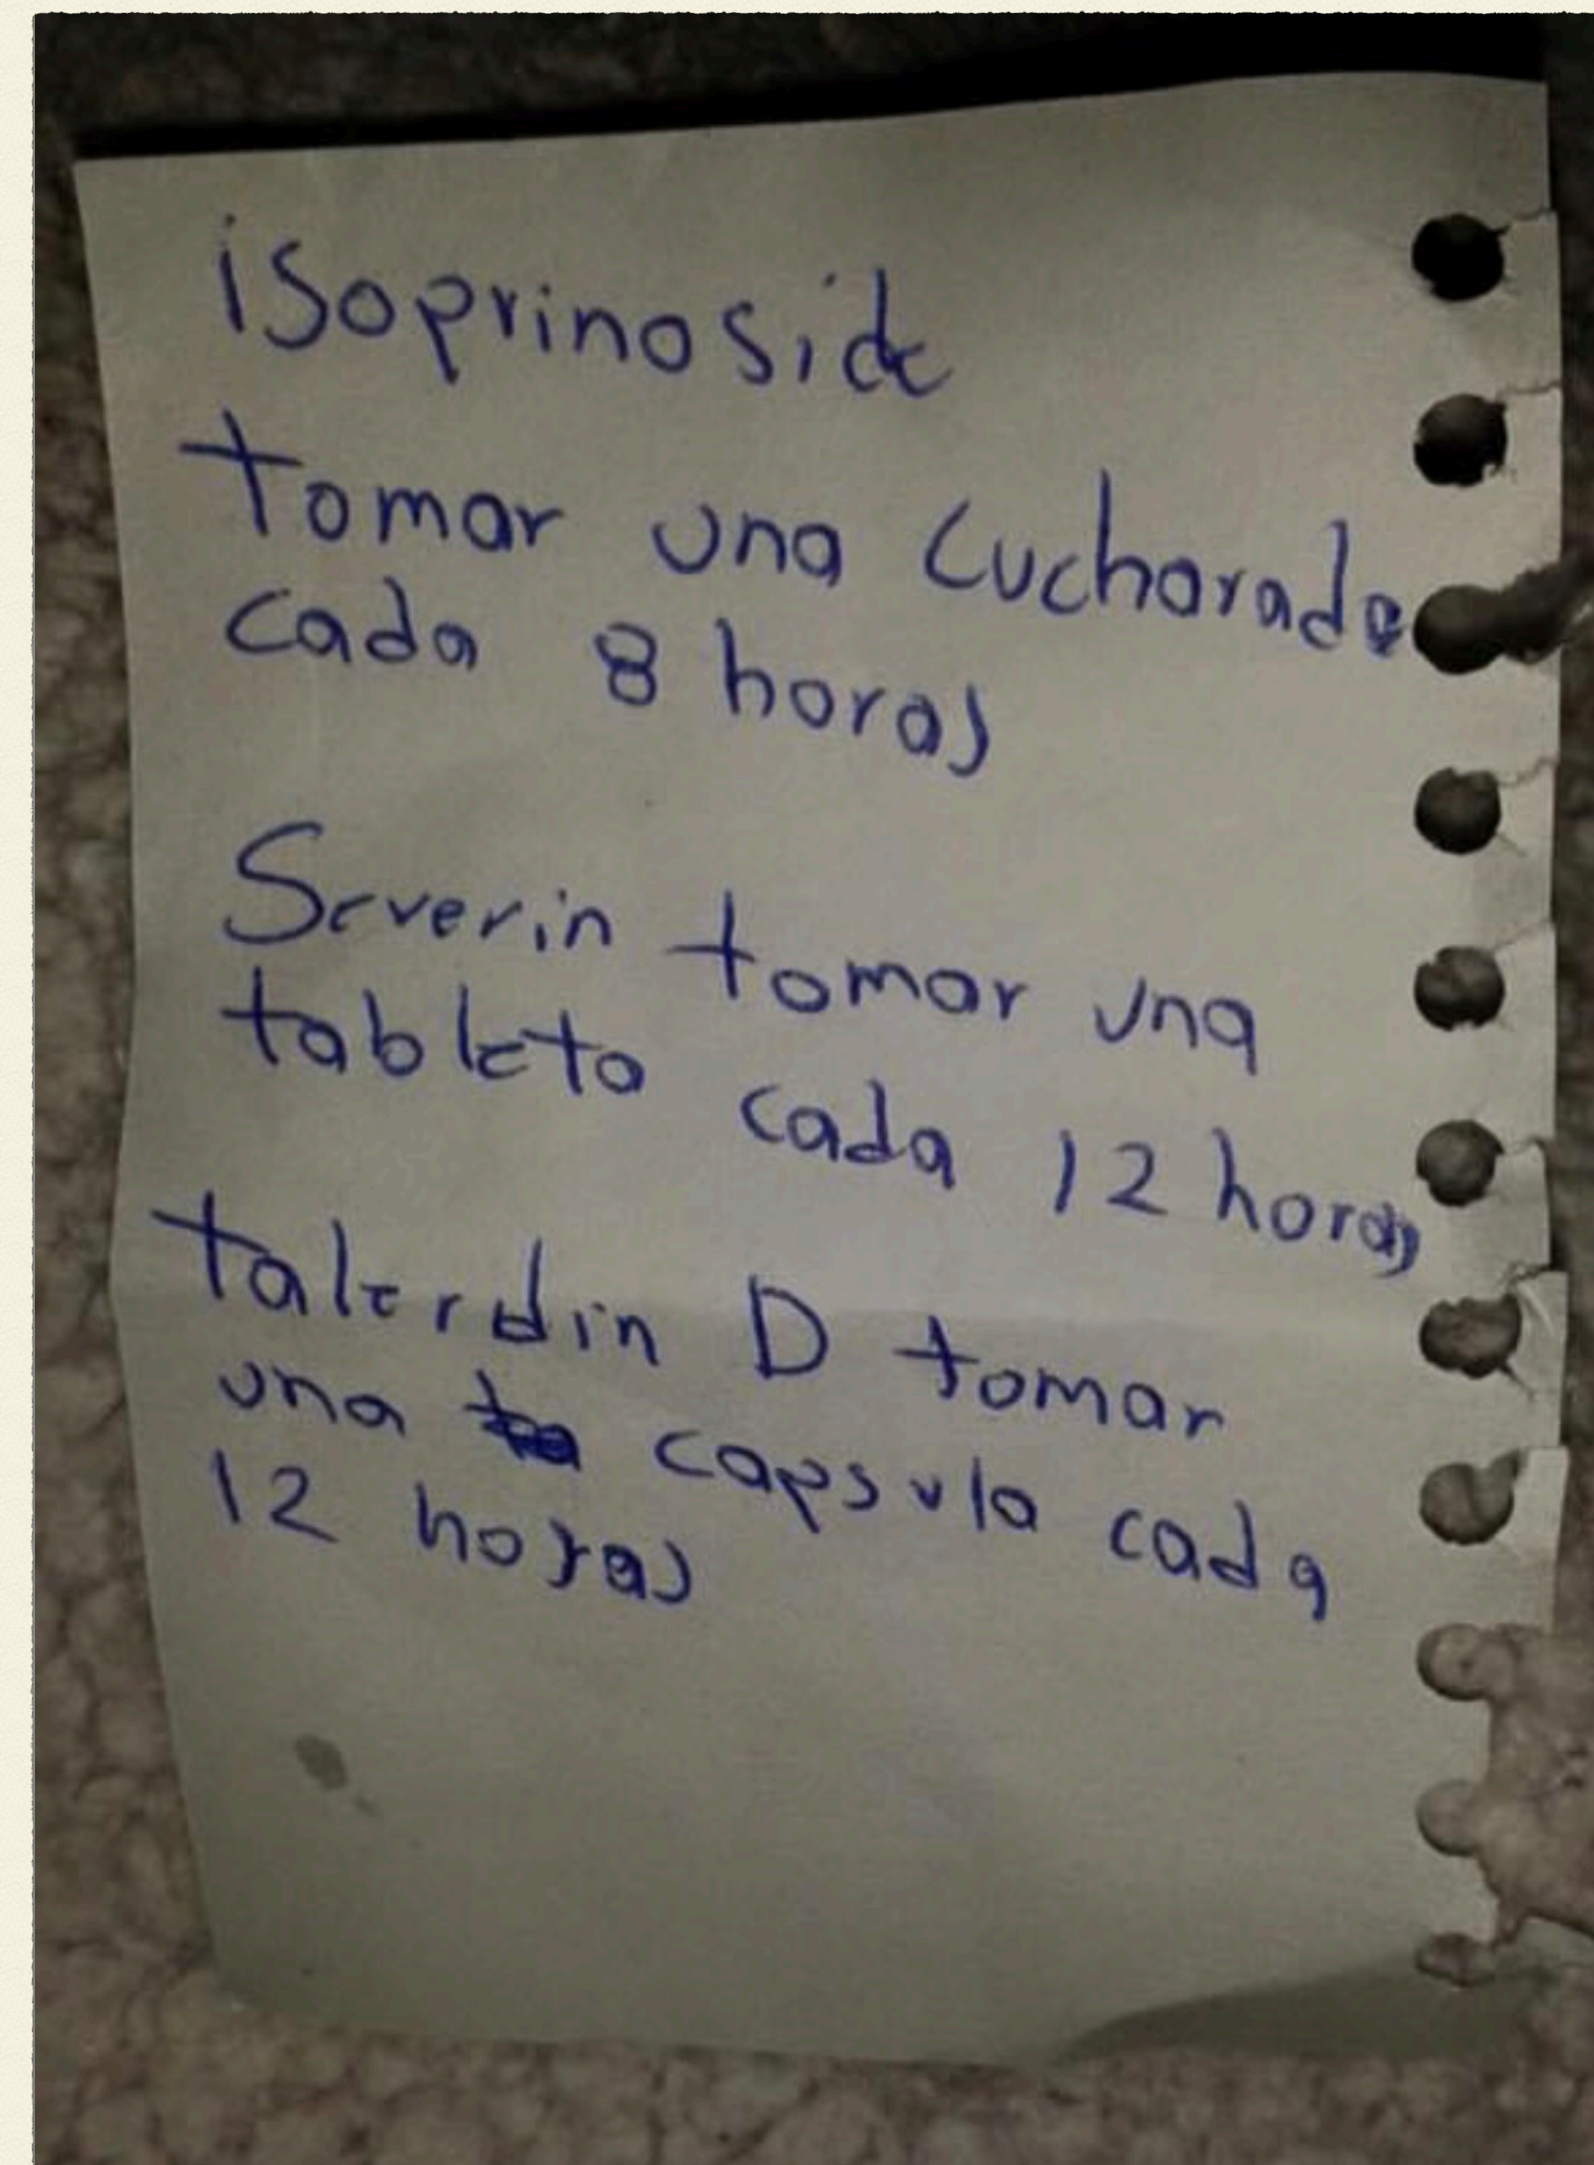 isoprinoside
tomar una cucharada
cada 8 horas
Severin tomar una
tableta cada 12 horas
talerdin D tomar
una capsula cada
12 horas